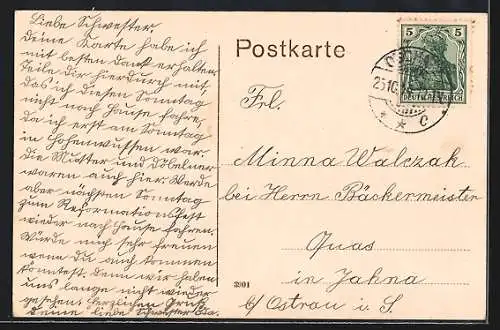 Liebe Schwester.
Deine Karte habe ich
mit besten dank erhalten
Teile dir hierdurch mit
das ich diesen Sonntag
nicht nach Hause fahre,
da ich erst am Sonntag
in Hohenwussen war.
Die Mutter und Döbelner
waren auch hier. Werde
aber nächsten Sonntag
zum Reformationsfest
wieder nach Hause fahren.
Würde mich sehr freuen
wenn du auch kommen
könntest. Denn wir haben
uns lange nicht wieder
gesehen. herzlichen Gruß
Deine liebe Schwester
Postkarte
Frl.
Minna Walczak
bei Herrn Bäckermeister
Quas
in Jahna
b/ Ostrau i. S.
3901
5 5
DEUTSCHES REICH
* * c